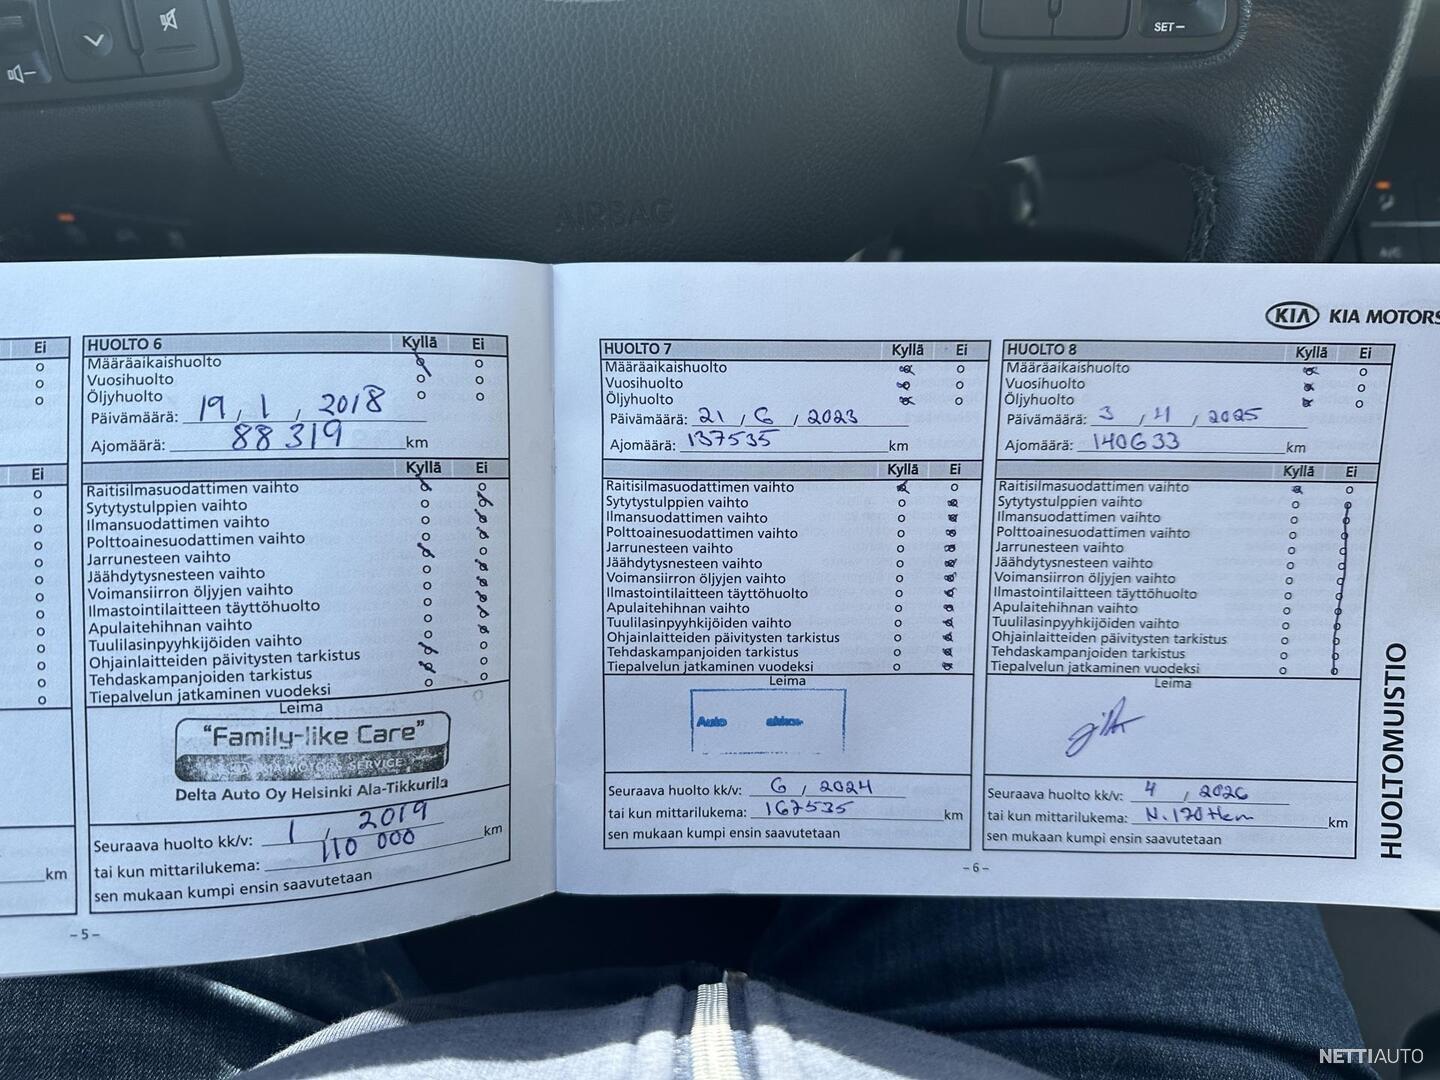 SET–
AIRBAG
Ei
Ei
km
HUOLTO 6 Kyllä Ei
Määräaikaishuolto
Vuosihuolto
Öljyhuolto
Päivämäärä: 19 / 1 / 2018
Ajomäärä: 88 319 km
Kyllä Ei
Raitisilmasuodattimen vaihto
Sytytystulppien vaihto
Ilmansuodattimen vaihto
Polttoainesuodattimen vaihto
Jarrunesteen vaihto
Jäähdytysnesteen vaihto
Voimansiirron öljyjen vaihto
Ilmastointilaitteen täyttöhuolto
Apulaitehihnan vaihto
Tuulilasinpyyhkijöiden vaihto
Ohjainlaitteiden päivitysten tarkistus
Tehdaskampanjoiden tarkistus
Tiepalvelun jatkaminen vuodeksi
Leima
"Family-like Care"
KIA MOTORS SERVICE
Delta Auto Oy Helsinki Ala-Tikkurila
Seuraava huolto kk/v: 1 / 2019
tai kun mittarilukema: 110 000 km
sen mukaan kumpi ensin saavutetaan
– 5 –
KIA KIA MOTORS
HUOLTO 7 Kyllä Ei
Määräaikaishuolto
Vuosihuolto
Öljyhuolto
Päivämäärä: 21 / 6 / 2023
Ajomäärä: 137535 km
Kyllä Ei
Raitisilmasuodattimen vaihto
Sytytystulppien vaihto
Ilmansuodattimen vaihto
Polttoainesuodattimen vaihto
Jarrunesteen vaihto
Jäähdytysnesteen vaihto
Voimansiirron öljyjen vaihto
Ilmastointilaitteen täyttöhuolto
Apulaitehihnan vaihto
Tuulilasinpyyhkijöiden vaihto
Ohjainlaitteiden päivitysten tarkistus
Tehdaskampanjoiden tarkistus
Tiepalvelun jatkaminen vuodeksi
Leima
Auto
Seuraava huolto kk/v: 6 / 2024
tai kun mittarilukema: 167535 km
sen mukaan kumpi ensin saavutetaan
HUOLTO 8 Kyllä Ei
Määräaikaishuolto
Vuosihuolto
Öljyhuolto
Päivämäärä: 3 / 4 / 2025
Ajomäärä: 140633 km
Kyllä Ei
Raitisilmasuodattimen vaihto
Sytytystulppien vaihto
Ilmansuodattimen vaihto
Polttoainesuodattimen vaihto
Jarrunesteen vaihto
Jäähdytysnesteen vaihto
Voimansiirron öljyjen vaihto
Ilmastointilaitteen täyttöhuolto
Apulaitehihnan vaihto
Tuulilasinpyyhkijöiden vaihto
Ohjainlaitteiden päivitysten tarkistus
Tehdaskampanjoiden tarkistus
Tiepalvelun jatkaminen vuodeksi
Leima
Seuraava huolto kk/v: 4 / 2026
tai kun mittarilukema: N. 170 tkm km
sen mukaan kumpi ensin saavutetaan
– 6 –
HUOLTOMUISTIO
NETTIAUTO